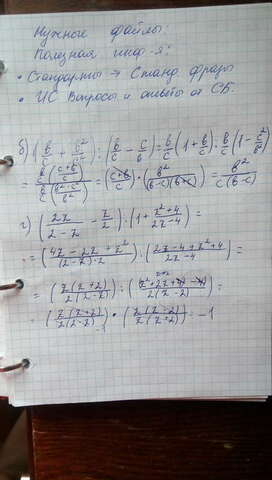 Нужные файлы:
Полезная инф-я:
• Стандарты → Станд. фразы
• ИС Вопросы и ответы от СБ.
б) (b/c + b²/c²) : (b/c - c/b) = b/c (1 + b/c) : b/c (1 - c²/b²)
= (b/c ((c+b)/c)) / (b/c ((b²-c²)/b²)) = ((c+b)/c) · (b²/((b-c)(b+c))) = b²/(c(b-c))
г) (2x/(2-x) - x/2) : (1 + (x²+4)/(2x-4)) =
= ((4x - 2x + x²)/((2-x)·2)) : ((2x-4+x²+4)/(2x-4)) =
= (x(x+2)/(2(2-x))) :
= (x(x+2)/(2(2-x))) · (2(x-2)/(x(x+2))) = -1